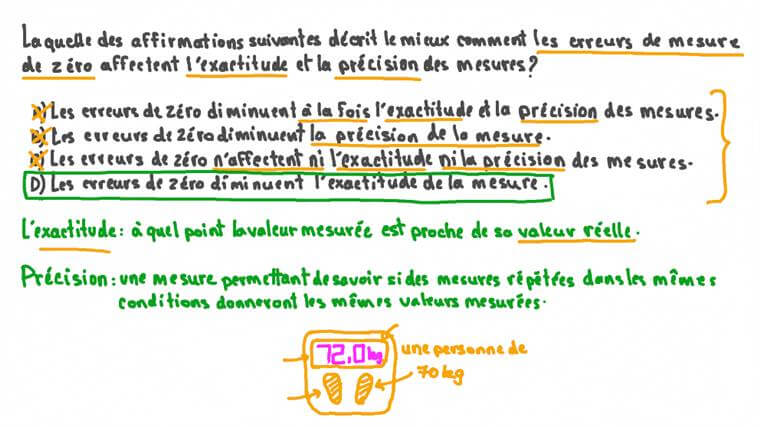 Laquelle des affirmations suivantes décrit le mieux comment les erreurs de mesure
de zéro affectent l'exactitude et la précision des mesures?
A) Les erreurs de zéro diminuent à la fois l'exactitude et la précision des mesures.
B) Les erreurs de zéro diminuent la précision de la mesure.
C) Les erreurs de zéro n'affectent ni l'exactitude ni la précision des mesures.
D) Les erreurs de zéro diminuent l'exactitude de la mesure.
L'exactitude: à quel point la valeur mesurée est proche de sa valeur réelle.
Précision: une mesure permettant de savoir si des mesures répétées dans les mêmes
conditions donneront les mêmes valeurs mesurées.
72,0 kg
une personne de
70 kg